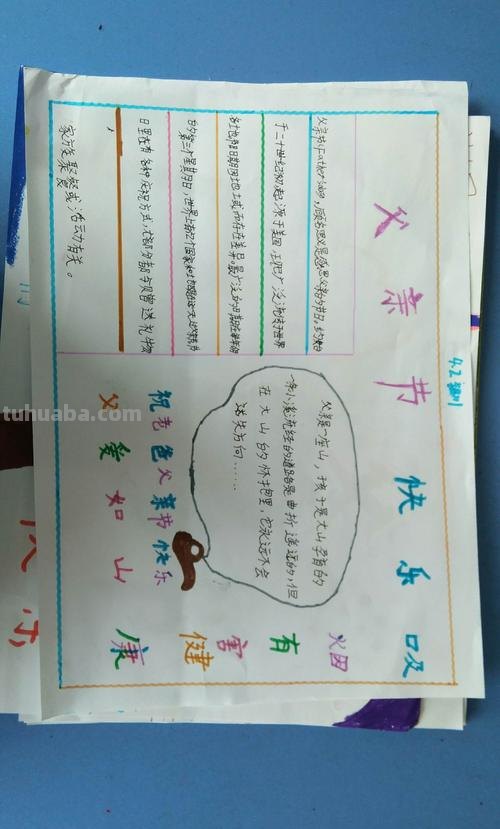 父亲节快乐
4.2
父亲节(Father's Day),顾名思义是感恩父亲的节日。约始自
于二十世纪初,起源于美国,现已广泛流传于世界
各地,节日日期因地域而存在差异。最广泛的日期在每年6
月的第三个星期日,世界上有52个国家和地区是在这一天过父亲节
日里有各种庆祝方式,大部分都与赠送礼物
家族聚餐或活动有关。
父亲是一座山,孩子是大山孕育的
一条小溪,流经的道路是曲折遥远的,但
在大山的怀抱里,它永远不会
迷失方向……
祝老爸父亲节快乐
父爱如山
吸烟有害健康
tuhuaba.com